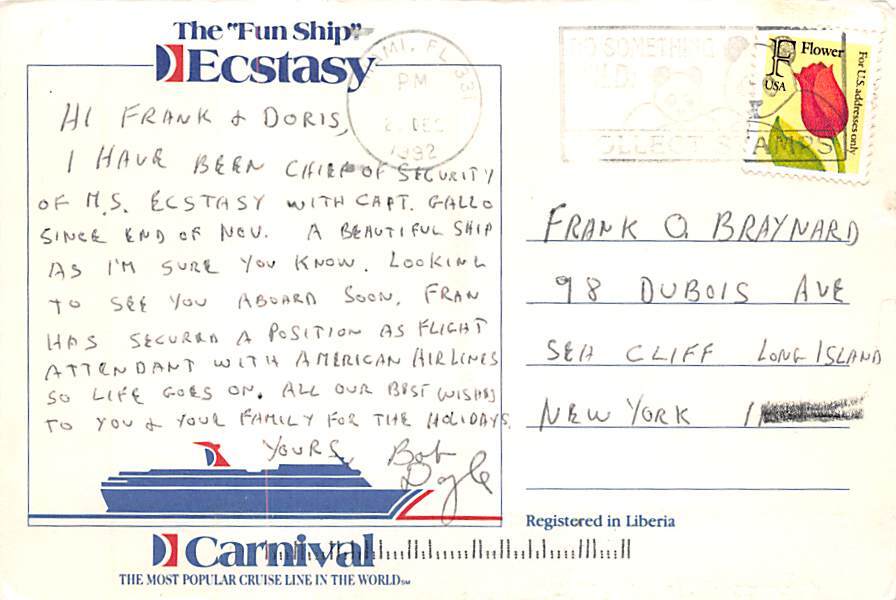 The "Fun Ship"
Ecstasy
HI FRANK & DORIS,
I HAVE BEEN CHIEF OF SECURITY
OF M.S. ECSTASY WITH CAPT. GALLO
SINCE END OF NOV. A BEAUTIFUL SHIP
AS I'M SURE YOU KNOW. LOOKING
TO SEE YOU ABOARD SOON. FRAN
HAS SECURED A POSITION AS FLIGHT
ATTENDANT WITH AMERICAN AIRLINES
SO LIFE GOES ON. ALL OUR BEST WISHES
TO YOU & YOUR FAMILY FOR THE HOLIDAYS.
YOURS,
Bob
Doyle
Carnival
THE MOST POPULAR CRUISE LINE IN THE WORLD℠
MIAMI, FL 331
PM
DEC
1992
DO SOMETHING
COLLECT STAMPS
F Flower
USA
For U.S. addresses only
FRANK O. BRAYNARD
98 DUBOIS AVE
SEA CLIFF LONG ISLAND
NEW YORK 11
Registered in Liberia